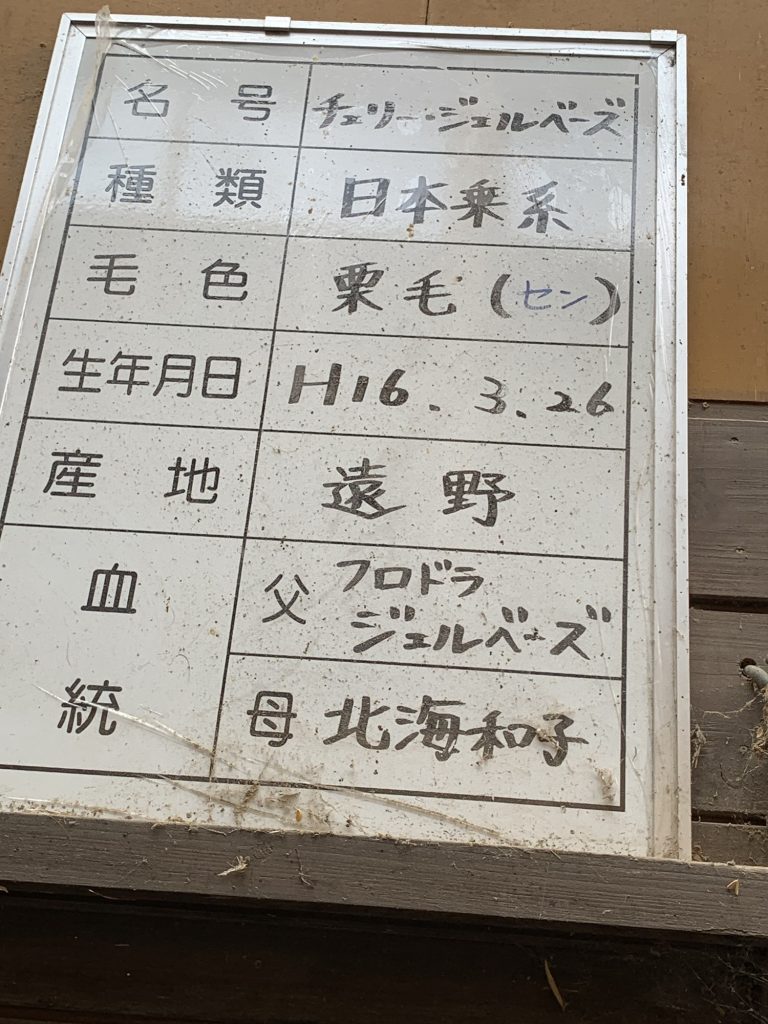 名号 チェリー・ジェルベーズ
種類 日本乗系
毛色 栗毛(セン)
生年月日 H16.3.26
産地 遠野
血統
父 フロドラ
ジェルベーズ
母 北海和子